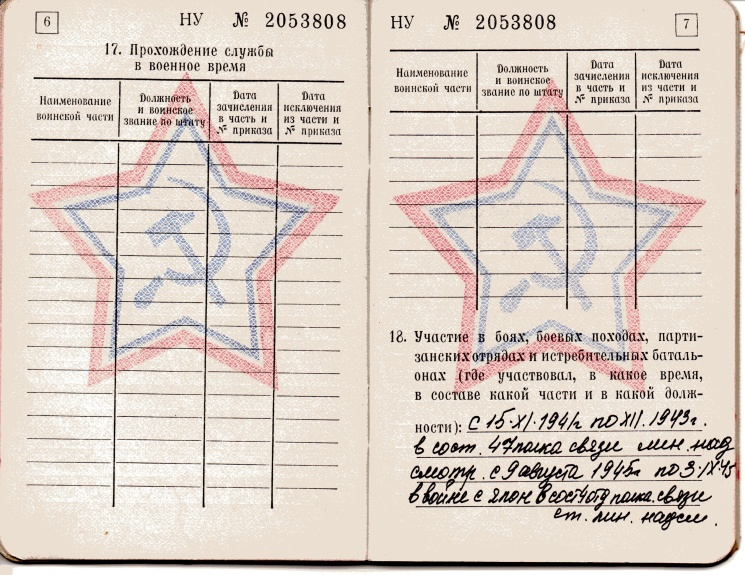 6
НУ № 2053808
17. Прохождение службы
в военное время
Наименование
воинской части
Должность
и воинское
звание по штату
Дата
зачисления
в часть и
№ приказа
Дата
исключения
из части и
№ приказа
НУ № 2053808
7
Наименование
воинской части
Должность
и воинское
звание по штату
Дата
зачисления
в часть и
№ приказа
Дата
исключения
из части и
№ приказа
18. Участие в боях, боевых походах, парти-
занских отрядах и истребительных баталь-
онах (где участвовал, в какое время,
в составе какой части и в какой долж-
ности): с 15.XI.1941г по XII.1943г.
в сост. 47 полка связи лин. над
смотр. с 9 августа 1945г по 3.IX.45
в войне с япон в сост полка связи
ст. лин. надсм.